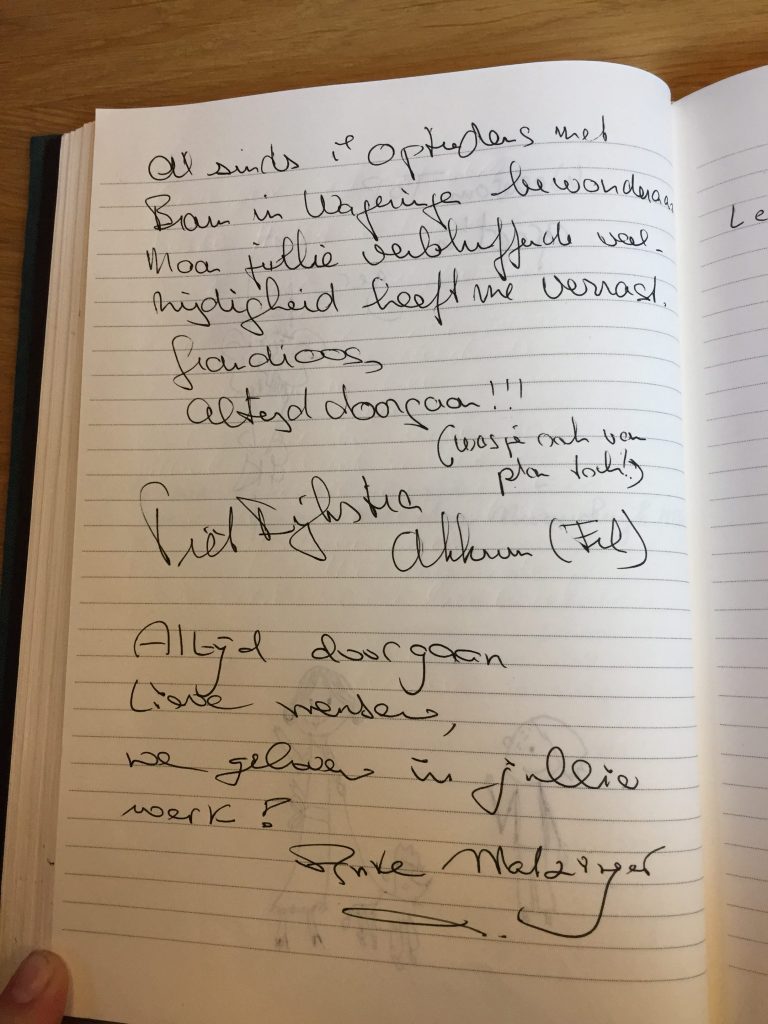 Al sinds 1e optredens met
Bram in Wageningen bewonderaar
Maar jullie verbluffende veel-
zijdigheid heeft me verrast.
Grandioos,
Altijd doorgaan!!!
(was je ook van
plan toch!!)
Piet Dijkstra
Akkrum (Frl)
Altijd doorgaan
Lieve mensen,
we geloven in jullie
werk!
Matzinger
Le